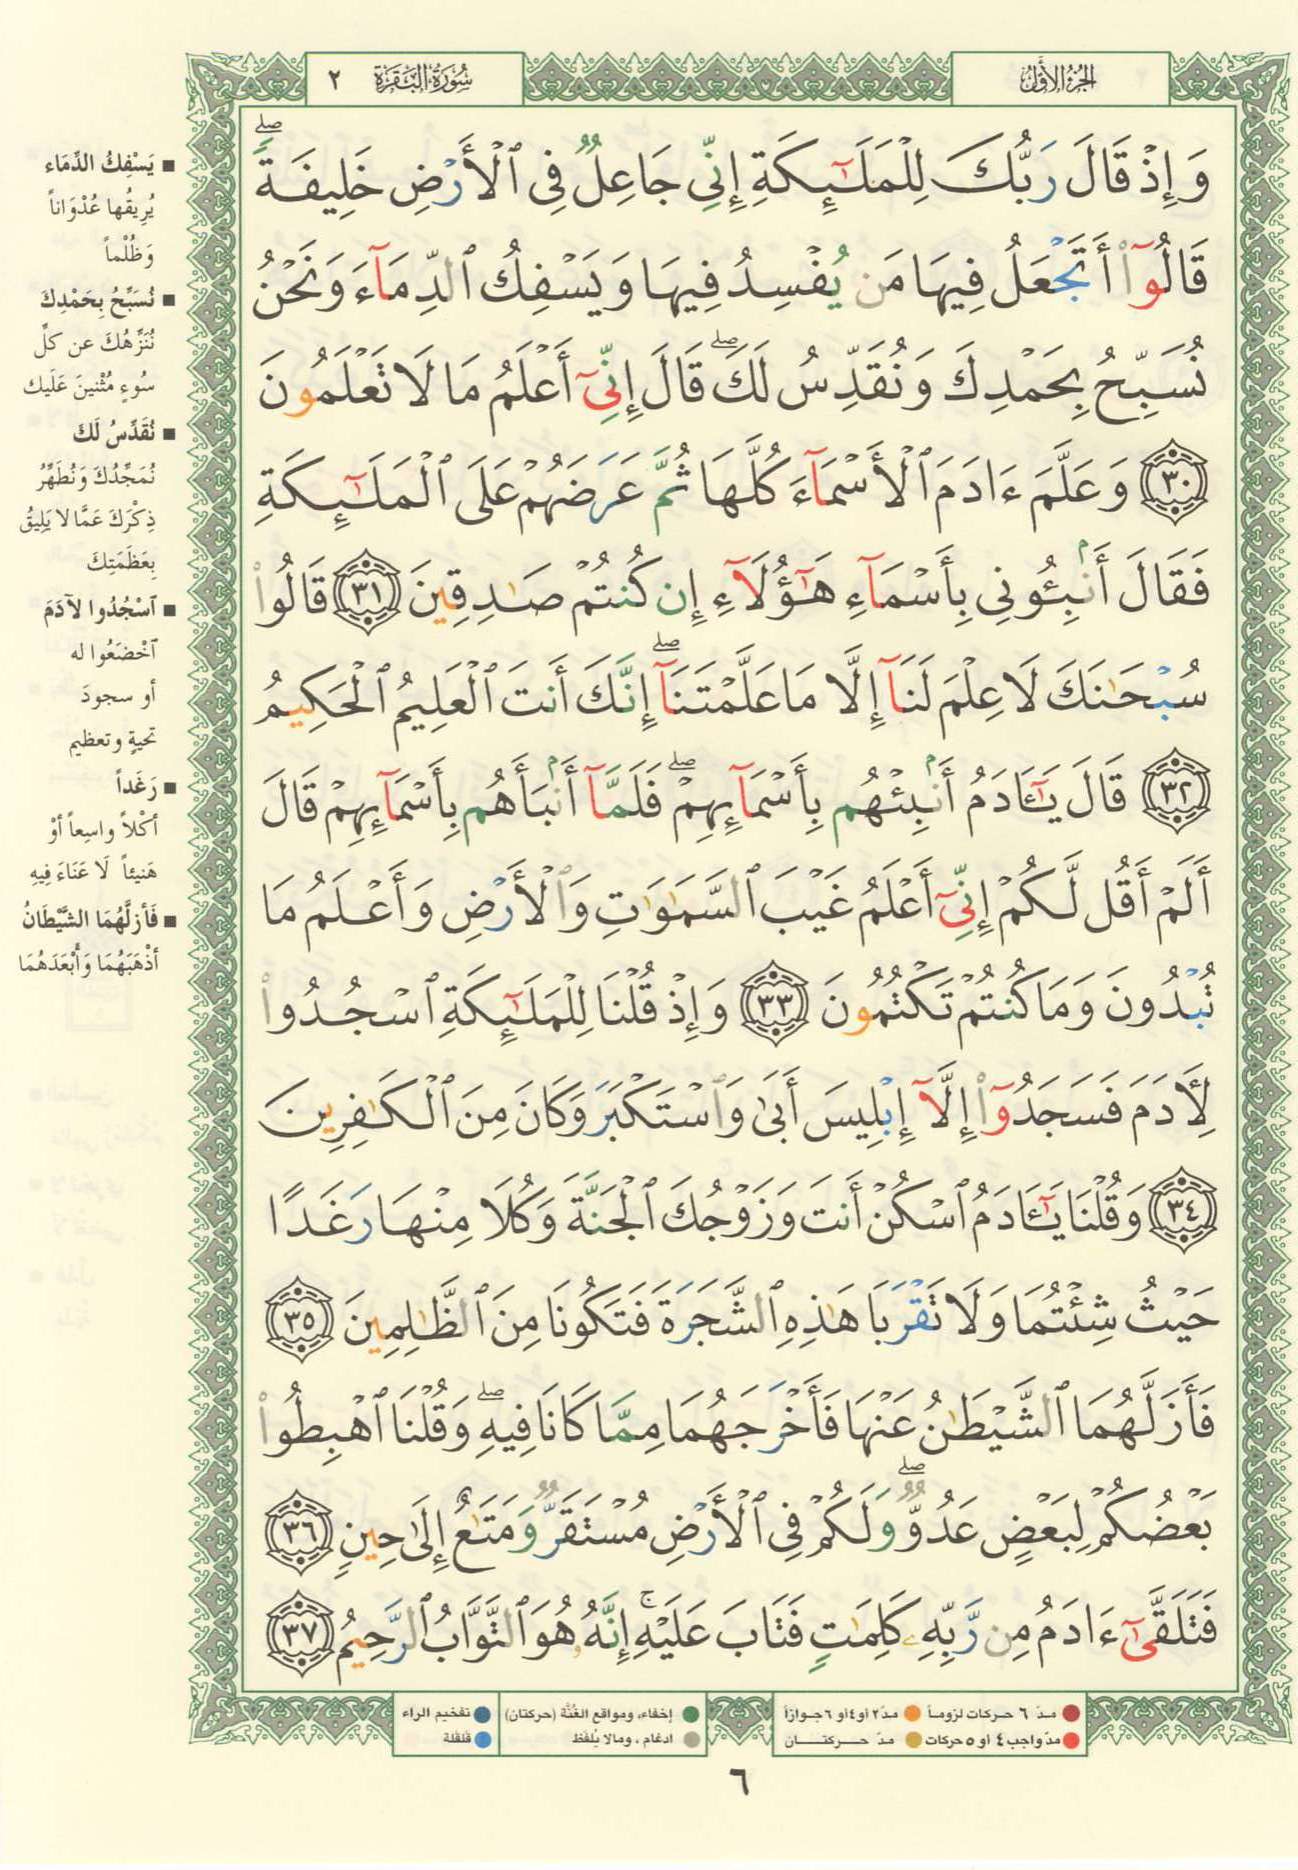 الجزء الأول
سورة البقرة ٢
وَإِذْ قَالَ رَبُّكَ لِلْمَلَٰٓئِكَةِ إِنِّي جَاعِلٌ فِي ٱلْأَرْضِ خَلِيفَةً ۖ
قَالُوٓا۟ أَتَجْعَلُ فِيهَا مَن يُفْسِدُ فِيهَا وَيَسْفِكُ ٱلدِّمَآءَ وَنَحْنُ
نُسَبِّحُ بِحَمْدِكَ وَنُقَدِّسُ لَكَ ۖ قَالَ إِنِّيٓ أَعْلَمُ مَا لَا تَعْلَمُونَ
٣٠ وَعَلَّمَ ءَادَمَ ٱلْأَسْمَآءَ كُلَّهَا ثُمَّ عَرَضَهُمْ عَلَى ٱلْمَلَٰٓئِكَةِ
فَقَالَ أَنۢبِـُٔونِي بِأَسْمَآءِ هَٰٓؤُلَآءِ إِن كُنتُمْ صَٰدِقِينَ ٣١ قَالُوا۟
سُبْحَٰنَكَ لَا عِلْمَ لَنَآ إِلَّا مَا عَلَّمْتَنَآ ۖ إِنَّكَ أَنتَ ٱلْعَلِيمُ ٱلْحَكِيمُ
٣٢ قَالَ يَٰٓـَٔادَمُ أَنۢبِئْهُم بِأَسْمَآئِهِمْ ۖ فَلَمَّآ أَنۢبَأَهُم بِأَسْمَآئِهِمْ قَالَ
أَلَمْ أَقُل لَّكُمْ إِنِّيٓ أَعْلَمُ غَيْبَ ٱلسَّمَٰوَٰتِ وَٱلْأَرْضِ وَأَعْلَمُ مَا
تُبْدُونَ وَمَا كُنتُمْ تَكْتُمُونَ ٣٣ وَإِذْ قُلْنَا لِلْمَلَٰٓئِكَةِ ٱسْجُدُوا۟
لِـَٔادَمَ فَسَجَدُوٓا۟ إِلَّآ إِبْلِيسَ أَبَىٰ وَٱسْتَكْبَرَ وَكَانَ مِنَ ٱلْكَٰفِرِينَ
٣٤ وَقُلْنَا يَٰٓـَٔادَمُ ٱسْكُنْ أَنتَ وَزَوْجُكَ ٱلْجَنَّةَ وَكُلَا مِنْهَا رَغَدًا
حَيْثُ شِئْتُمَا وَلَا تَقْرَبَا هَٰذِهِ ٱلشَّجَرَةَ فَتَكُونَا مِنَ ٱلظَّٰلِمِينَ ٣٥
فَأَزَلَّهُمَا ٱلشَّيْطَٰنُ عَنْهَا فَأَخْرَجَهُمَا مِمَّا كَانَا فِيهِ ۖ وَقُلْنَا ٱهْبِطُوا۟
بَعْضُكُمْ لِبَعْضٍ عَدُوٌّ ۖ وَلَكُمْ فِي ٱلْأَرْضِ مُسْتَقَرٌّ وَمَتَٰعٌ إِلَىٰ حِينٍ ٣٦
فَتَلَقَّىٰٓ ءَادَمُ مِن رَّبِّهِۦ كَلِمَٰتٍ فَتَابَ عَلَيْهِ ۚ إِنَّهُۥ هُوَ ٱلتَّوَّابُ ٱلرَّحِيمُ ٣٧
■ يَسْفِكُ الدِّمَاء
يُرِيقُها عُدْوَاناً
وَظُلْماً
■ نُسَبِّحُ بِحَمْدِكَ
نُنَزِّهُكَ عن كلِّ
سُوءٍ مُثْنينَ عَلَيك
■ نُقَدِّسُ لَكَ
نُمَجِّدُكَ وَنُطَهِّرُ
ذِكْرَكَ عَمَّا لا يَلِيقُ
بِعَظَمَتِكَ
■ اَسْجُدُوا لآدَمَ
اَخْضَعُوا له
أو سجودَ
تحيةٍ وتعظيم
■ رَغَداً
أكْلاً واسِعاً أوْ
هَنيئاً لَا عَنَاءَ فِيهِ
■ فَأزلَّهُمَا الشَّيْطَانُ
أذْهَبَهُمَا وَأبْعَدَهُمَا
مدّ ٦ حركات لزوماً ● مدّ ٢ أو ٤ أو ٦ جوازاً
مدّ واجب ٤ أو ٥ حركات ● مدّ حركتان
إخفاء، ومواقع الغُنَّة (حركتان)
ادغام ، ومالا يُلفَظ
تفخيم الراء
قلقلة
٦